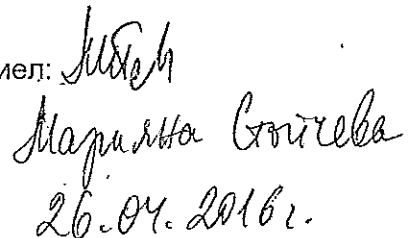 иел:
Марияна Стойчева
26.04.2016г.